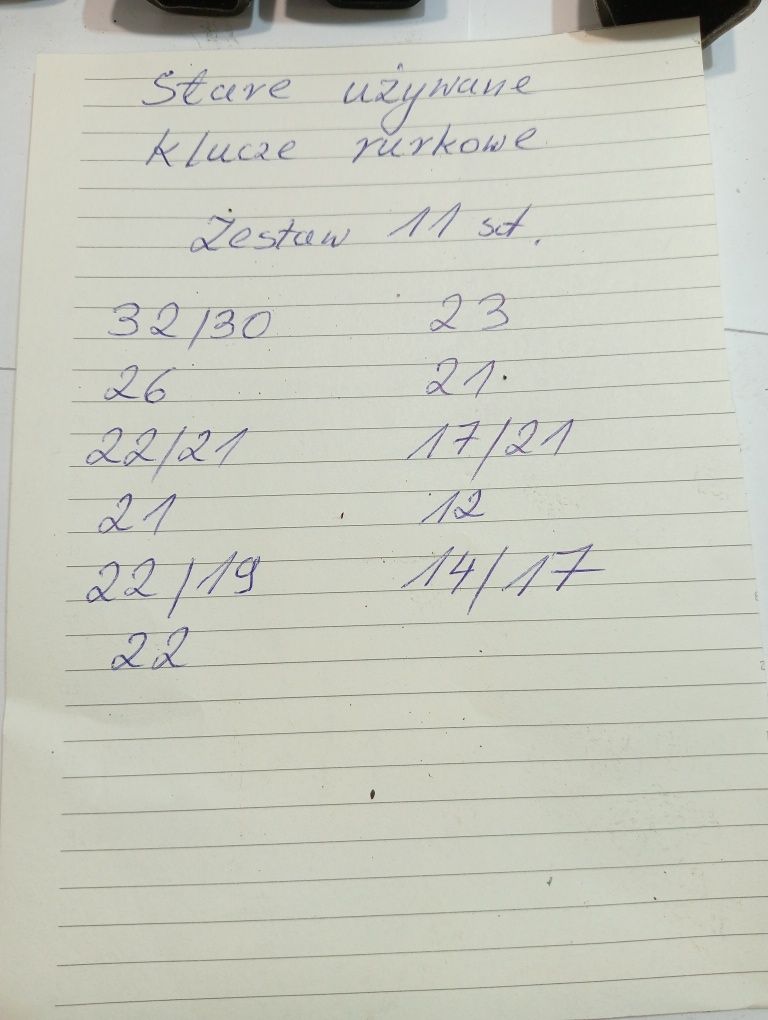 Stare używane
klucze rurkowe
Zestaw 11 szt.
32/30 23
26 21.
22/21 17/21
21 12
22/19 14/17
22